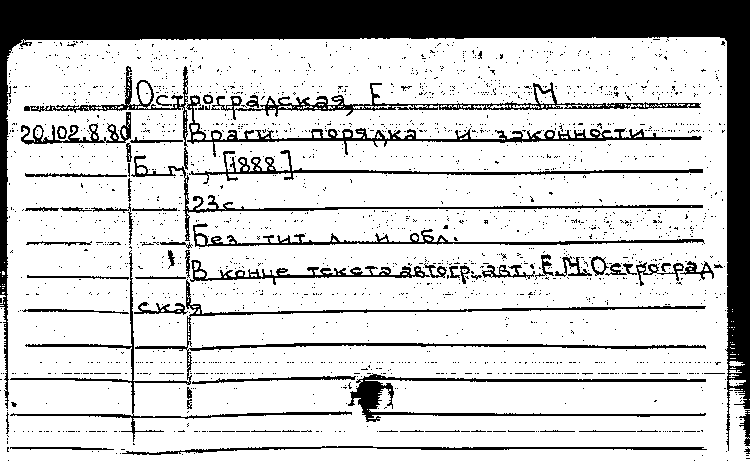 Остроградская, Е М
20.102.8.80 Враги порядка и законности.
Б. м., [1888].
23с.
Без тит. л. и обл.
В конце текста автогр. авт.: Е.М.Остроград-
ская